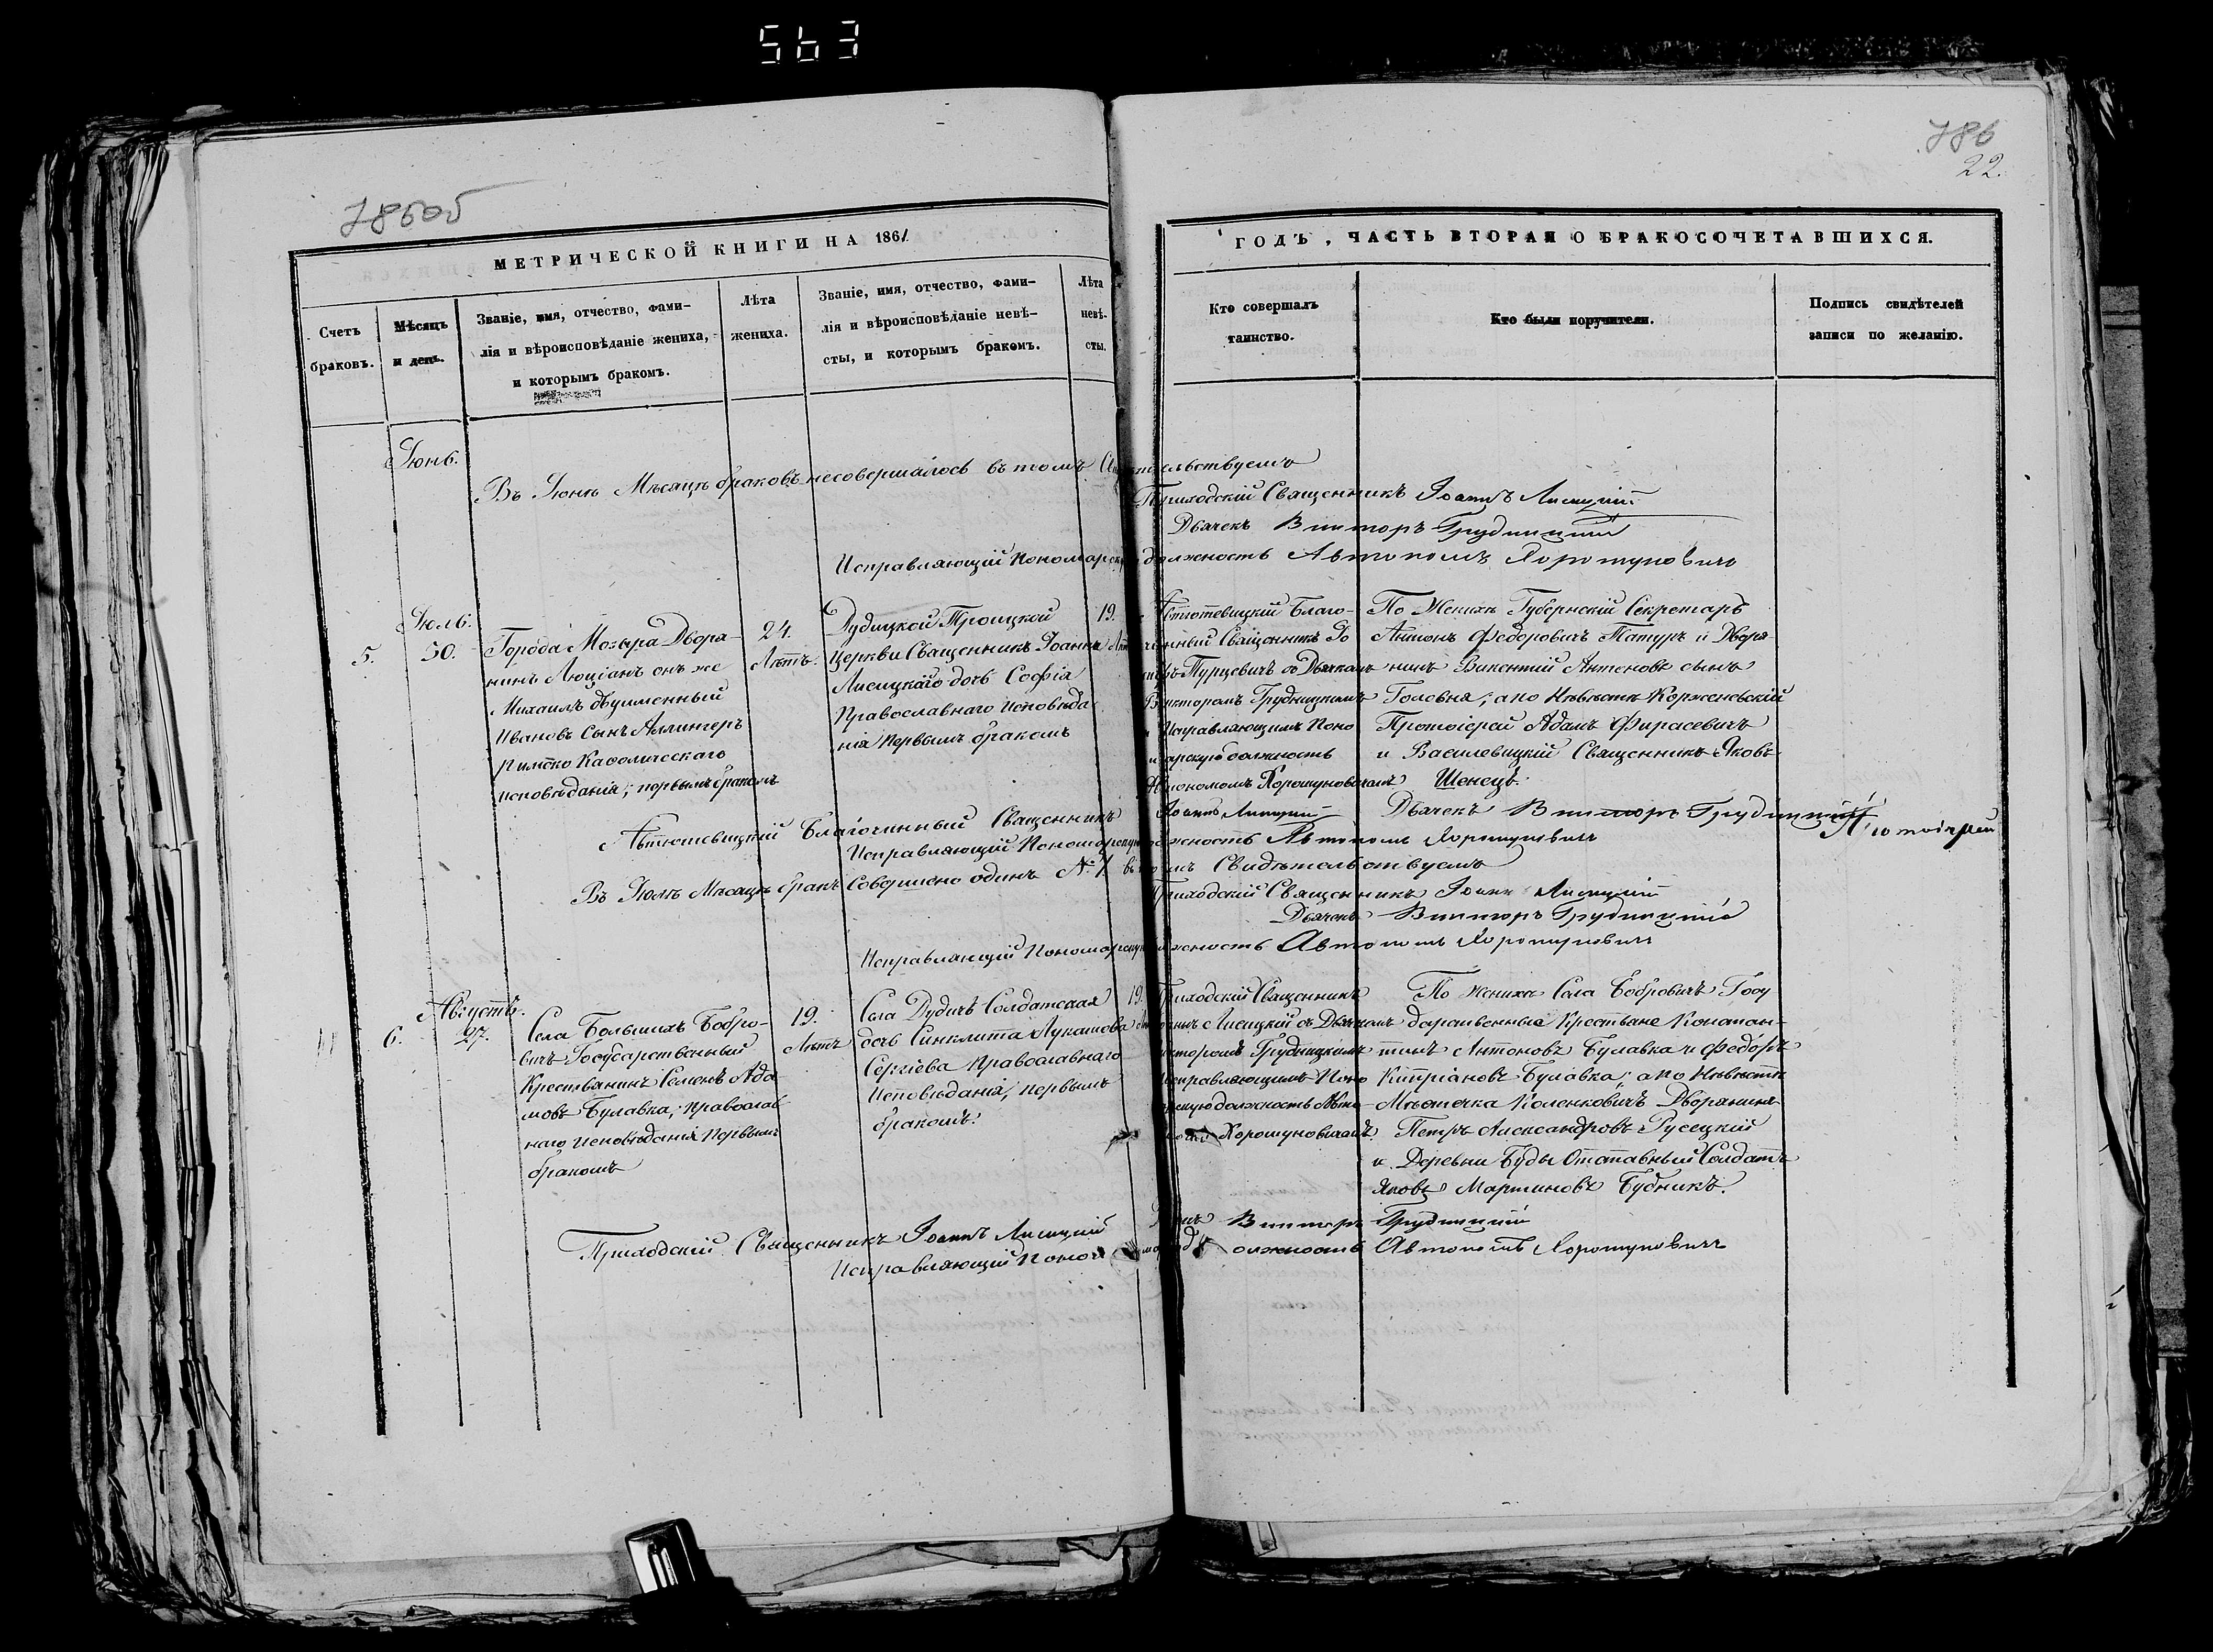 563
786об
786
22.
МЕТРИЧЕСКОЙ КНИГИ НА 1861
ГОДЪ, ЧАСТЬ ВТОРАЯ О БРАКОСОЧЕТАВШИХСЯ.
Счетъ
браковъ.
Мѣсяцъ
и день.
Званіе, имя, отчество, фами-
лія и вѣроисповѣданіе жениха,
и которымъ бракомъ.
Лѣта
жениха.
Званіе, имя, отчество, фами-
лія и вѣроисповѣданіе невѣ-
сты, и которымъ бракомъ.
Лѣта
невѣ-
сты.
Кто совершалъ
таинство.
Кто были поручители.
Подпись свидѣтелей
записи по желанію.
Іюнь.
Въ Іюнѣ Мѣсяцѣ браковъ несовершалось въ томъ Свидѣтельствуемъ
Приходскій Священникъ Іоаннъ Лисицкій
Дьячекъ Викторъ Грудницкій
Исправляющій Пономарскую должность Автономъ Хорошуновичъ
Іюль.
5.
30.
Города Мозыра Дворя-
нинъ Люціанъ онъ же
Михаилъ двуименный
Ивановъ Сынъ Аллингеръ
Римско Каѳолическаго
исповѣданія, первымъ бракомъ
24.
Лѣтъ.
Дудицкой Троицкой
Церкви Священника Іоанна
Лисицкаго дочь Софія
Православнаго исповѣда
нія первымъ бракомъ
19.
Автютевицкій Благо-
чинный Священникъ
Турцевичъ съ Дьячкомъ
Викторомъ Грудницкимъ
Исправляющимъ Поно
марскую должность
Автономомъ Хорошуновичемъ
По Женихѣ Губернскій Секретарь
Антонъ Федоровичъ Татуръ и Дворя-
нинъ Викентій Антоновъ сынъ
Головня; а по Невѣстѣ Корженевскій
Протоіерей Адамъ Фирасевичъ
и Василевицкій Священникъ Яковъ
Шенецъ.
Автютевицкій Благочинный Священникъ
Іоаннъ Лисицкій Дьячекъ Викторъ Грудницкій
Исправляющій Пономарскую должность Автономъ Хорошуновичъ
Въ Іюлѣ Мѣсяцѣ бракъ Совершено одинъ № 1. въ томъ Свидѣтельствуемъ
Приходскій Священникъ Іоаннъ Лисицкій
Дьячекъ Викторъ Грудницкій
Исправляющій Пономарскую должность Автономъ Хорошуновичъ
Августъ.
6.
27.
Села Большихъ Бобро-
вичъ Государственный
Крестьянинъ Семенъ Ада
мовъ Булавка, Православ
наго исповѣданія первымъ
бракомъ
19.
Лѣтъ
Села Дудичъ Солдатская
дочь Синклита Лукашова
Сергіева Православнаго
Исповѣданія, первымъ
бракомъ.
19.
Приходскій Священникъ
Іоаннъ Лисицкій съ Дьячкомъ
Викторомъ Грудницкимъ
Исправляющимъ Поно
марскую должность Авто-
номомъ Хорошуновичемъ.
По Женихѣ Села Бобровичъ Госу
дарственные Крестьяне Констан-
тинъ Антоновъ Булавка и Федоръ
Кипріановъ Булавка; а по Невѣстѣ
Мѣстечка Коленковичъ Дворянинъ
Петръ Александровъ Русецкій
и Деревни Буды Отставный Солдатъ
Яковъ Мартиновъ Будникъ.
Приходскій Священникъ Іоаннъ Лисицкій
Дьячекъ Викторъ Грудницкій
Исправляющій Пономарскую должность Автономъ Хорошуновичъ